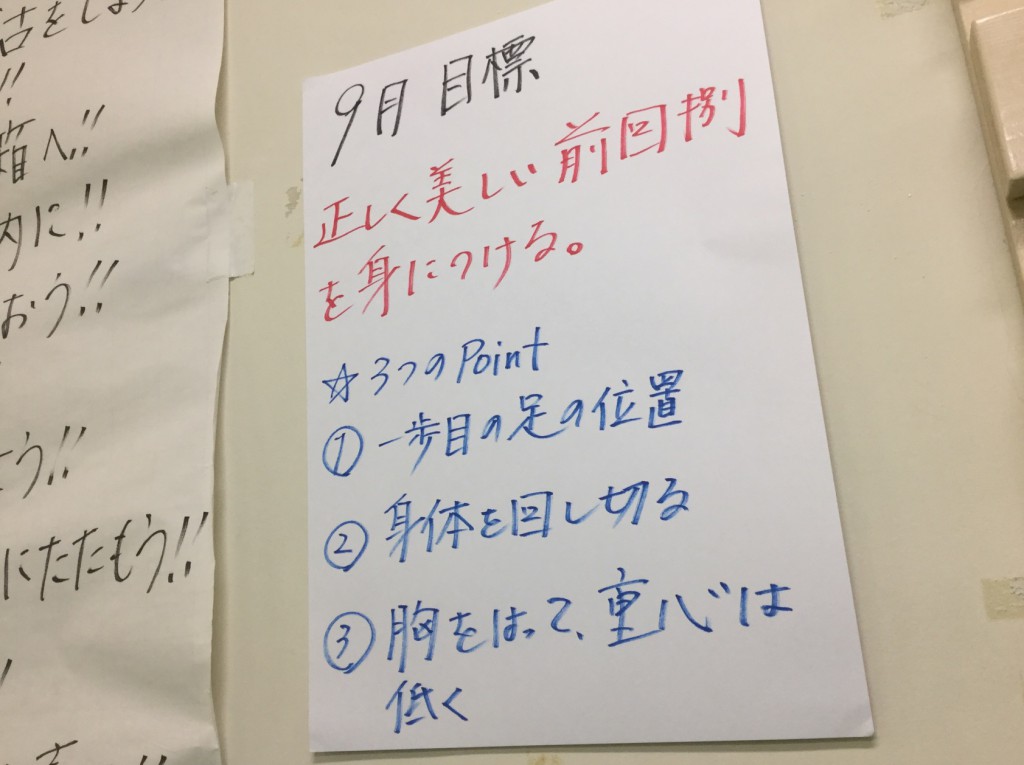 古をしよ
!!
箱へ!!
内に!!
おう!!
う!!
にたたもう!!
9月 目標
正しく美しい前回捌
を身につける。
☆3つのPoint
① 一歩目の足の位置
② 身体を回し切る
③ 胸をはって、重心は
低く